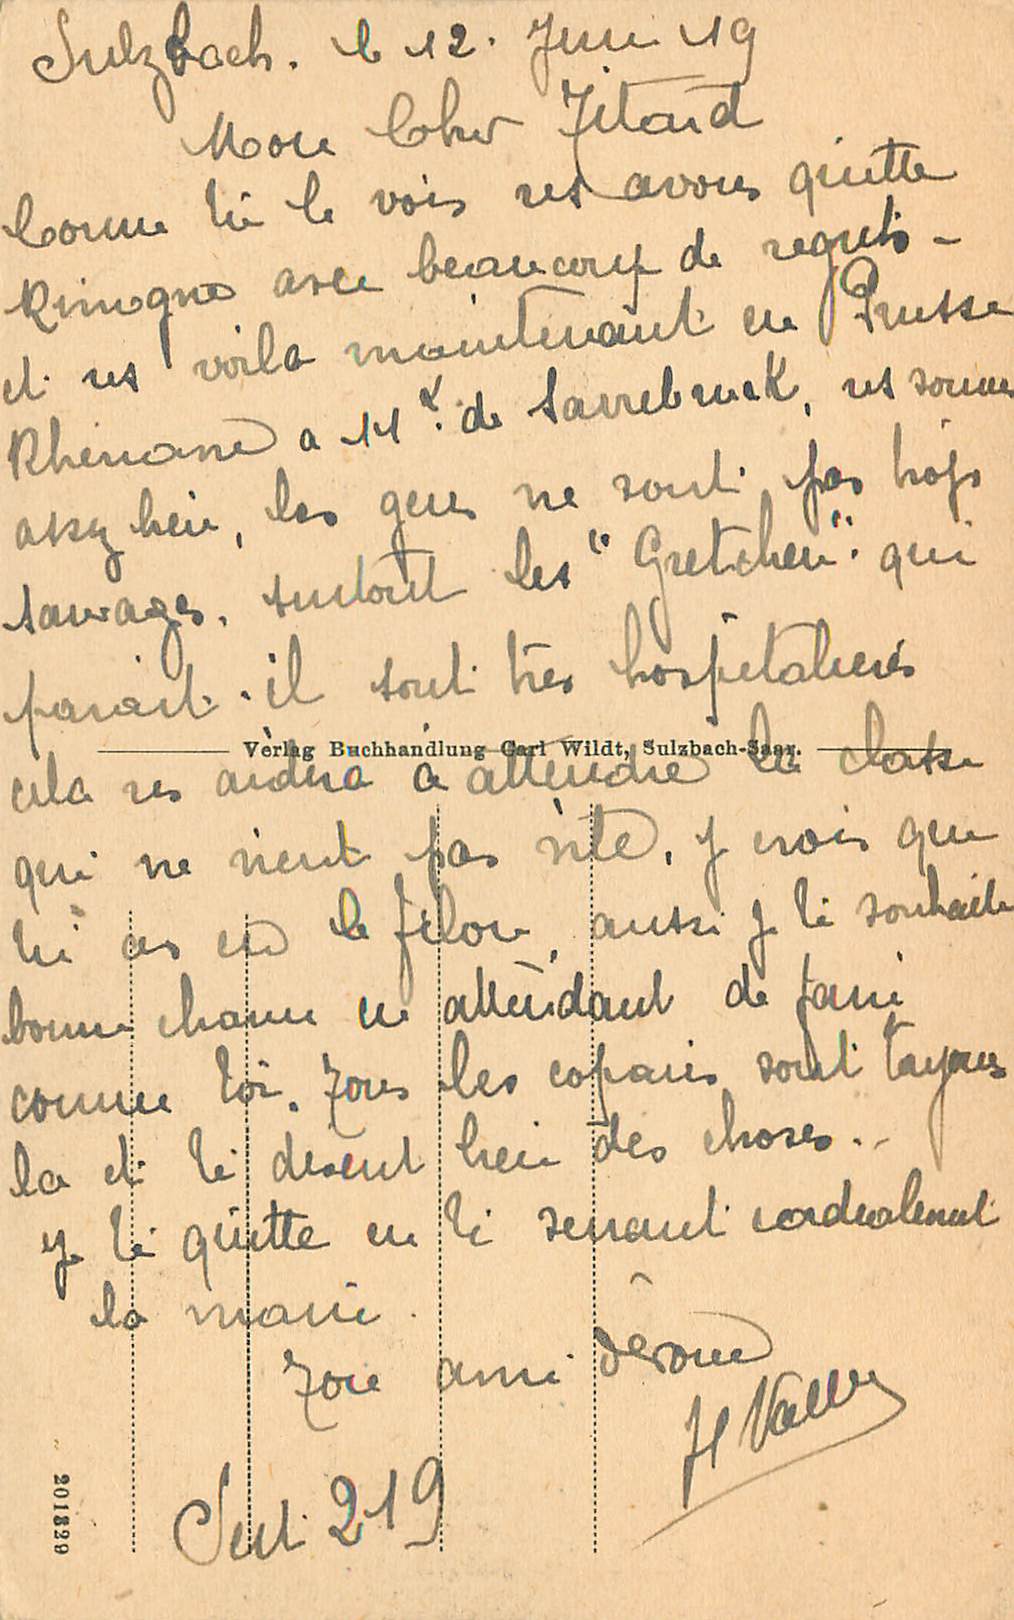 Sulzbach. le 12. Juin 19
Mon Cher Titard
Comme tu le vois ns avons quitté
Rimogne avec beaucoup de regrets -
et ns voila maintenant en Prusse
Rhénane a 11 K. de Sarrebruck, ns sommes
assez bien, les gens ne sont pas trops
sauvages, surtout les "Gretchen" qui
parait-il sont très hospitalières
Verlag Buchhandlung Carl Wildt, Sulzbach-Saar.
cela ns aidera a attendre la classe
qui ne vient pas vite, je crois que
tu as le filon, aussi je te souhaite
bonne chance en attendant de faire
comme toi. Tous les copains sont toujours
la et te disent bien des choses..
Je te quitte en te serrant cordialement
la main.
Ton ami dévoué
H Valle
Sect. 219
201829